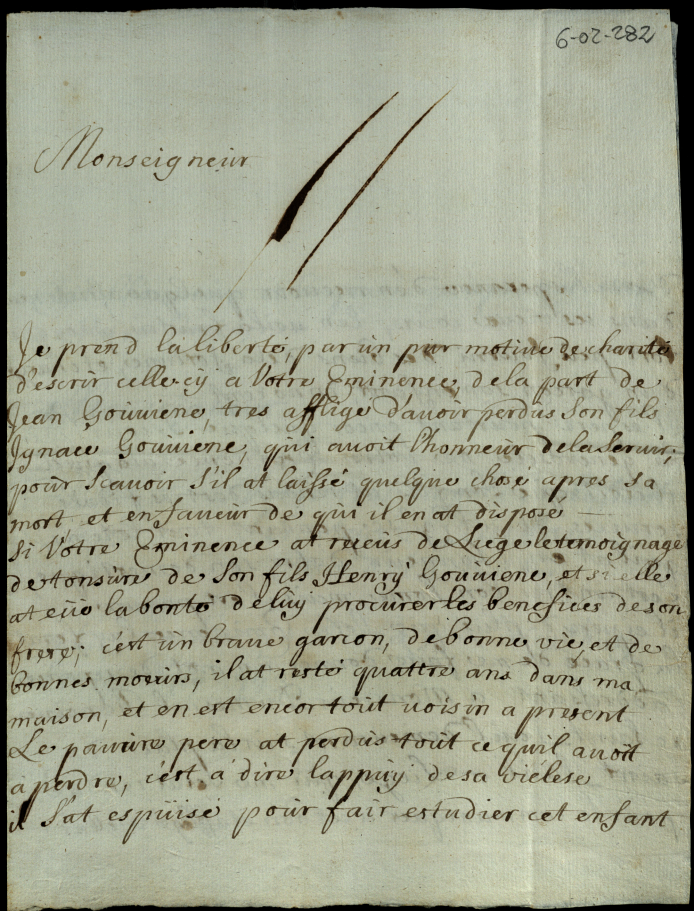 6-02-282
Monseigneur
Je prend la liberté, par un pur motive de charité
d'escrir celle cÿ a Votre Eminence, de la part de
Jean Gouuiene, tres afflige d'auoir perdus son fils
Ignace Gouuiene, qui auoit l'honneur de la seruir,
pour scauoir s'il at laissé quelque chose apres sa
mort et en faueur de qui il en at disposé —
si Votre Eminence at recus de Liege le temoignage
de tonsure de son fils Henrÿ Gouuiene, et si elle
at eüe la bonté de luÿ procurer les benefices de son
frere; c'est un braue garcon, de bonne vie, et de
bonnes moeurs, il at resté quattre ans dans ma
maison, et en est encor tout uoisin a present
Le pauure pere at perdus tout ce qu'il auoit
a perdre, c'est a dire l'appuÿ de sa viélese
il s'at espuisé pour fair estudier cet enfant